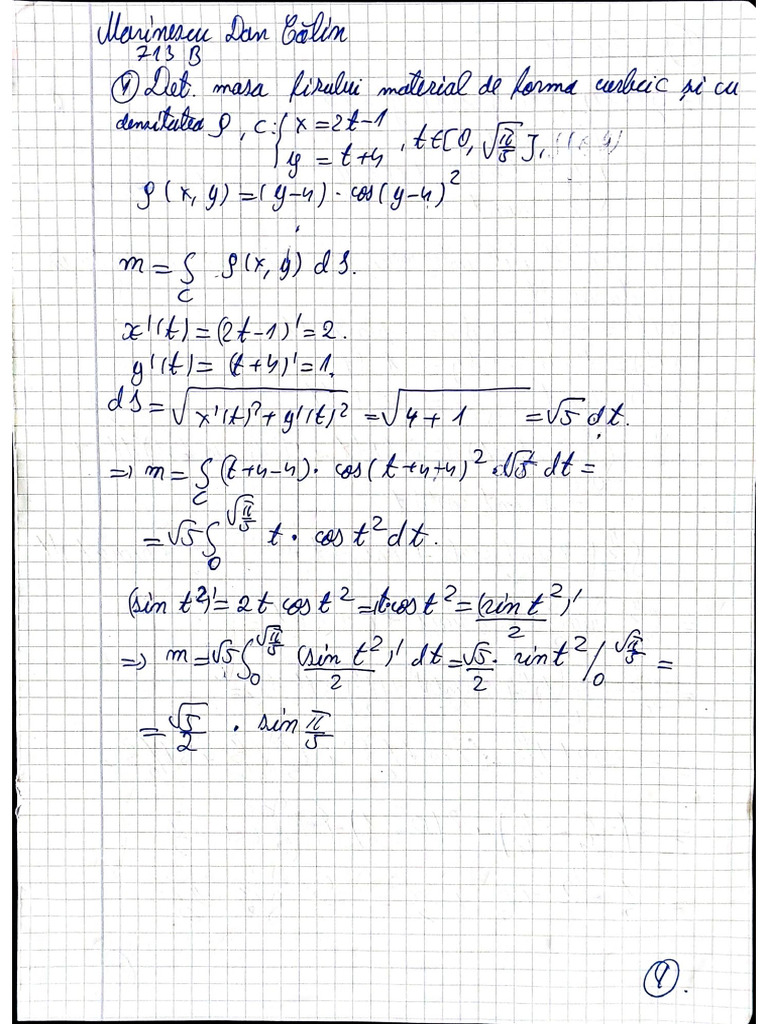 Marinescu Dan Călin
713 B
① Det. masa firului material de forma curbei C și cu
densitatea ρ, C: { x = 2t-1
y = t+4 , t∈[0, √(π/5)],
ρ(x, y) = (y-4) · cos(y-4)²
m = ∫_C ρ(x, y) ds.
x'(t) = (2t-1)' = 2.
y'(t) = (t+4)' = 1.
ds = √(x'(t)² + y'(t)²) = √(4+1) = √5 dt.
⇒ m = ∫_C (t+4-4) · cos(t+4+4)² · d√5 dt =
= √5 ∫₀^√(π/5) t · cos t² dt.
(sin t²)' = 2t cos t² ⇒ t cos t² = (sin t²)'/2
⇒ m = √5 ∫₀^√(π/5) (sin t²)'/2 dt = √5/2 · sin t² /₀^√(π/5) =
= √5/2 · sin π/5
①.